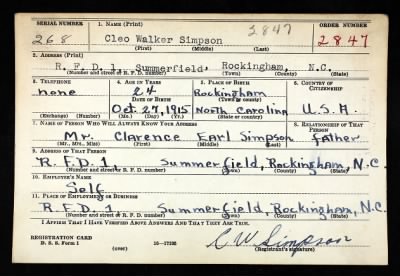 SERIAL NUMBER 1. NAME (Print) ORDER NUMBER
268 Cleo Walker Simpson 2847 2847
(First) (Middle) (Last)
2. ADDRESS (Print)
R. F. D. 1, Summerfield, Rockingham, N.C.
(Number and street or R. F. D. number) (Town) (County) (State)
3. TELEPHONE 4. AGE IN YEARS 5. PLACE OF BIRTH 6. COUNTRY OF CITIZENSHIP
none 24 Rockingham
DATE OF BIRTH (Town or county)
Oct. 27, 1915 North Carolina U.S.A.
(Exchange) (Number) (Mo.) (Day) (Yr.) (State or country)
7. NAME OF PERSON WHO WILL ALWAYS KNOW YOUR ADDRESS 8. RELATIONSHIP OF THAT PERSON
Mr. Clarence Earl Simpson father
(Mr., Mrs., Miss) (First) (Middle) (Last)
9. ADDRESS OF THAT PERSON
R.F.D. 1 Summerfield, Rockingham, N.C.
(Number and street or R. F. D. number) (Town) (County) (State)
10. EMPLOYER'S NAME
Self
11. PLACE OF EMPLOYMENT OR BUSINESS
R.F.D. 1 Summerfield, Rockingham, N.C.
(Number and street or R. F. D. number) (Town) (County) (State)
I AFFIRM THAT I HAVE VERIFIED ABOVE ANSWERS AND THAT THEY ARE TRUE.
REGISTRATION CARD
D. S. S. Form 1 (over) 16—17105 C. W. Simpson
(Registrant's signature)